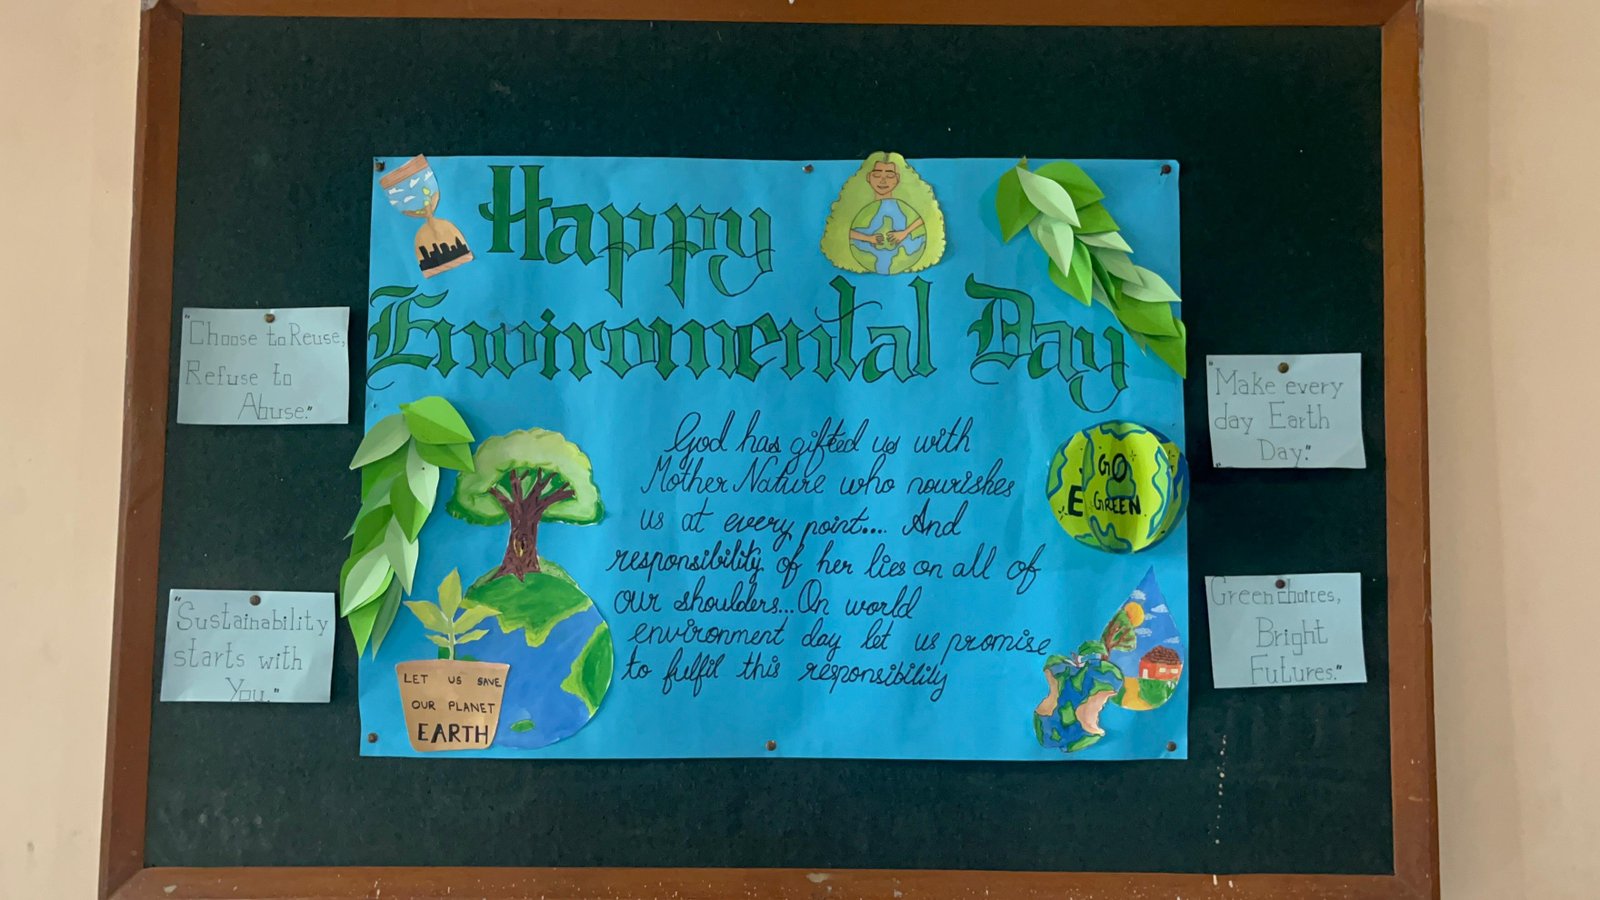 Happy
Enviromental Day
God has gifted us with
Mother Nature who nourishes
us at every point.... And
responsibility of her lies on all of
our shoulders...On world
environment day let us promise
to fulfil this responsibility
"Choose to Reuse,
Refuse to
Abuse."
"Sustainability
starts with
You."
"Make every
day Earth
Day."
Green choices,
Bright
Futures."
GO
GREEN
LET US SAVE
OUR PLANET
EARTH